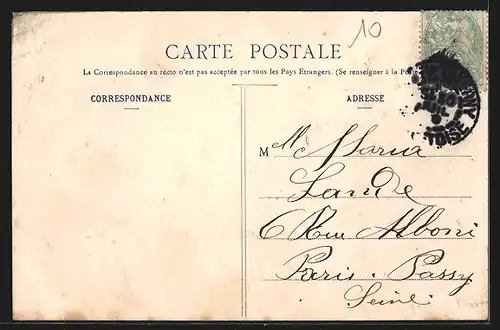 10
CARTE POSTALE
La Correspondance au recto n'est pas acceptée par tous les Pays Etrangers. (Se renseigner à la Poste
CORRESPONDANCE
ADRESSE
M lle Maria
Lande
6 Rue Alboni
Paris. Passy
Seine